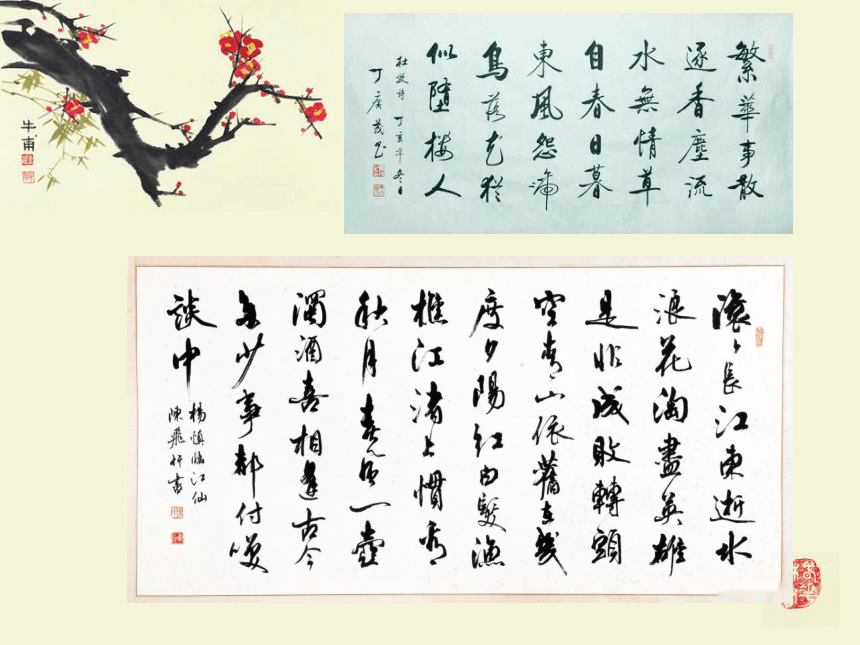 牛甫
繁華事散
逐香塵流
水無情草
自春日暮
東風怨啼
鳥落花猶
似墮楼人
杜牧詩 丁亥年冬日
滾〻長江東逝水
浪花淘盡英雄
是非成敗轉頭
空青山依舊在幾
度夕陽紅白髮漁
樵江渚上慣看
秋月春風一壺
濁酒喜相逢古今
多少事都付笑
談中
楊慎臨江仙